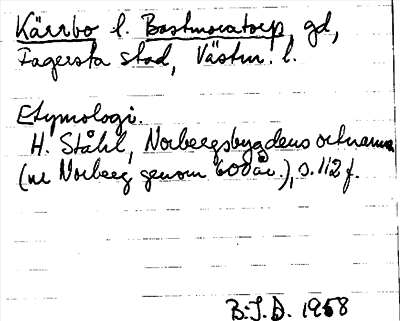 Kärrbo l. Bastmoratorp, gd,
Fagersta stad, Västm. l.
Etymologi.
H. Ståhl, Norbergsbygdens ortnamn
(ur Norberg genom 600 år.), s. 112 f.
B.J.D. 1958